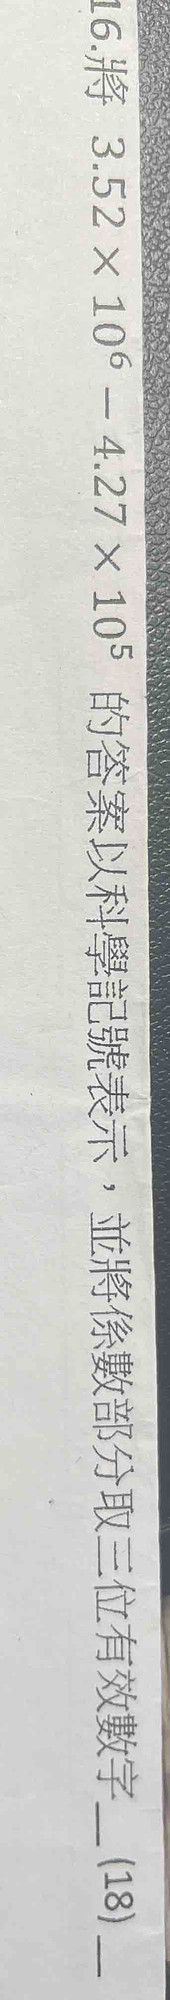 16.將 3.52 × 10⁶ − 4.27 × 10⁵ 的答案以科學記號表示，並將係數部分取三位有效數字__(18)__